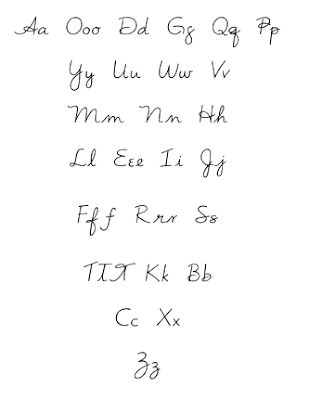 Aa Ooo Dd Gg Qq Pp
Yy Uu Ww Vv
Mm Nn Hh
Ll Eee Ii Jj
Fff Rrr Ss
TTT Kk Bb
Cc Xx
Zz